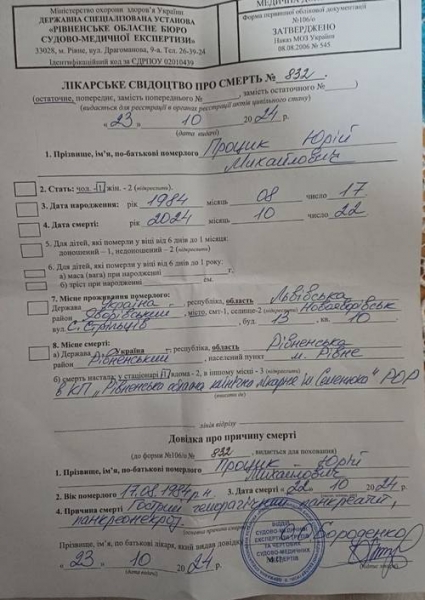 Міністерство охорони здоров'я України
ДЕРЖАВНА СПЕЦІАЛІЗОВАНА УСТАНОВА
«РІВНЕНСЬКЕ ОБЛАСНЕ БЮРО
СУДОВО-МЕДИЧНОЇ ЕКСПЕРТИЗИ»
33028, м. Рівне, вул. Драгоманова, 9-а, Тел. 26-39-24
Ідентифікаційний код за ЄДРПОУ 02010439
Форма первинної облікової документації
№106/о
ЗАТВЕРДЖЕНО
Наказ МОЗ України
08.08.2006 № 545
ЛІКАРСЬКЕ СВІДОЦТВО ПРО СМЕРТЬ № 832
(остаточне, попереднє, замість попереднього №, замість остаточного №
(видається для реєстрації в органах реєстрації актів цивільного стану)
« 23 » 10 2024 р.
(дата видачі)
1. Прізвище, ім'я, по-батькові померлого Процик Юрій
Михайлович
2. Стать: чол. -1, жін. - 2 (підкреслити)
3. Дата народження: рік 1984 місяць 08 число 17
4. Дата смерті: рік 2024 місяць 10 число 22
5. Для дітей, які померли у віці від 6 днів до 1 місяця:
доношений – 1, недоношений – 2 (підкреслити)
6. Для дітей, які померли у віці від 6 днів до 1 року:
а) маса (вага) при народженні г.
б) зріст при народженні см.
7. Місце проживання померлого:
Держава Україна республіка, область Львівська
район Яворівський, місто, смт-1, селище-2 (підкреслити) Новояворівськ
вул. буд. 13 кв. 10
8. Місце смерті:
а) Держава Україна республіка, область Рівненська
район Рівненський, населений пункт м. Рівне
б) смерть настала: у стаціонарі -1, вдома - 2, в іншому місці - 3 (підкреслити)
в КП "Рівненська обласна клінічна лікарня ім Семенюка" РОР
(вказати де)
лінія відрізу
Довідка про причину смерті
(до форми №106/о № 832, видається для поховання)
1. Прізвище, ім'я, по-батькові померлого Процик Юрій
Михайлович
2. Вік померлого 17.08.1984 р.н. 3. Дата смерті « 22 » 10 2024 р.
4. Причина смерті Гострий геморагічний панкреатит,
панкреонекроз.
Прізвище, ім'я, по батькові лікаря, який видав довідку Бороденко
« 23 » 10 2024 р.
(дата видачі)
ВІДДІЛ
СУДОВО-МЕДИЧНОЇ
ЕКСПЕРТИЗИ ТРУПІВ
ТА ЧЕРГОВИХ
СУДОВО-МЕДИЧНИХ
ЕКСПЕРТІВ